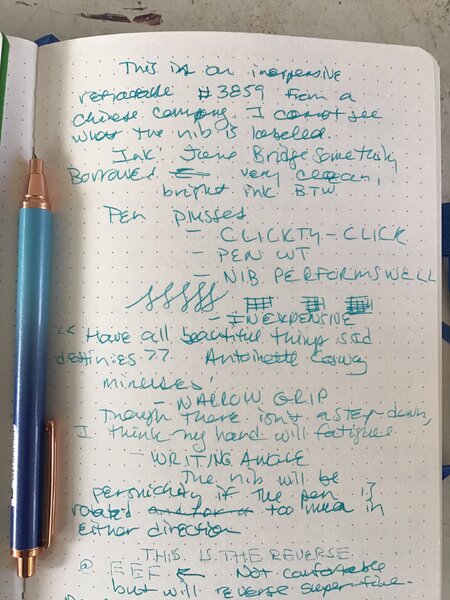 This is an inexpensive
retractable #3859 from a
chinese company. I cannot see
what the nib is labeled.
Ink: Jane Bridgesomething
Borrowed very clean,
bright ink BTW
Pen plusses
- CLICKTY-CLICK
- PEN WT
- NIB PERFORMS WELL
- INEXPENSIVE
"Have all beautiful things sad
destinies?? Antoinette Coswy
minuses:
- NARROW GRIP
Though there isn't a step-down,
I think my hand will fatigue.
- WRITING ANGLE
The nib will be
persnickity if the pen is
rotat'd and for a too much in
either direction
THIS IS THE REVERSE
@ EEF ← Not comfortable
but will reverse super-fine.